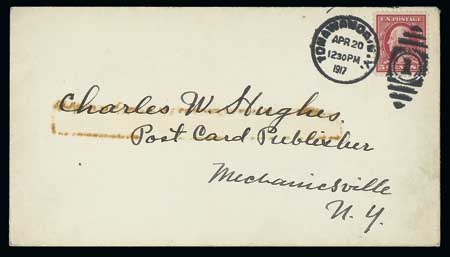 TONAWANDA, N.Y.
APR 20
1230 PM
1917
U.S. POSTAGE
1
Charles W. Hughes,
Post Card Publisher
Mechanicsville
N.Y.